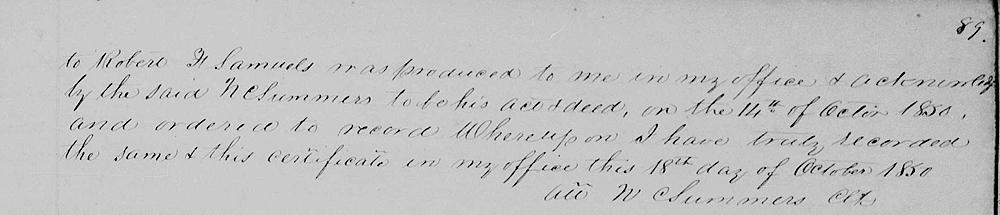 89.
to Robert H Samuels was produced to me in my office & acknowledg
by the said W C Summers to be his act & deed, on the 14th of Octor 1850,
and ordered to record Whereupon I have truly recorded
the same & this certificate in my office this 18th day of October 1850
Att W C Summers Clk